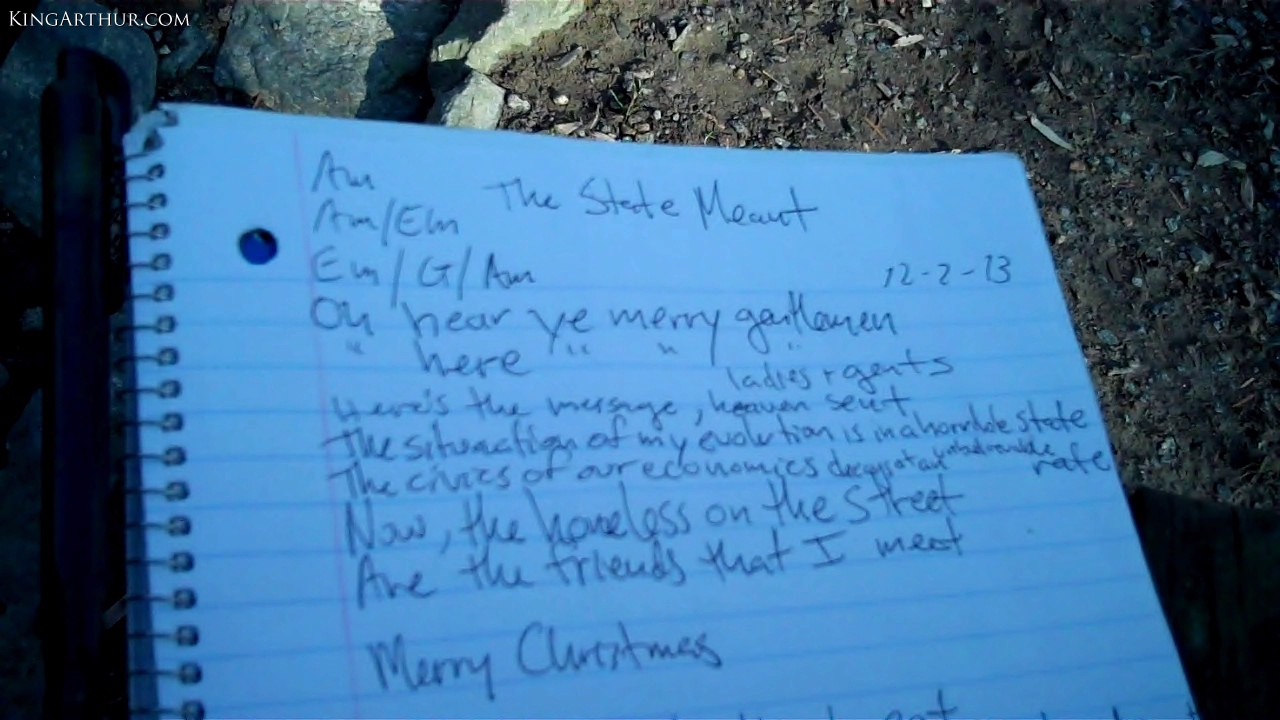 KINGARTHUR.COM
Am
The State Meant
Am/Em
Em/G/Am
12-2-13
Oh hear ye merry gentlemen
" here " " "
ladies + gents
Here's the message, heaven sent
The situaction of my evolution is in a horrible state
The civics of our economics decays at an rate
Now, the homeless on the street
Are the friends that I meet
Merry Christmas